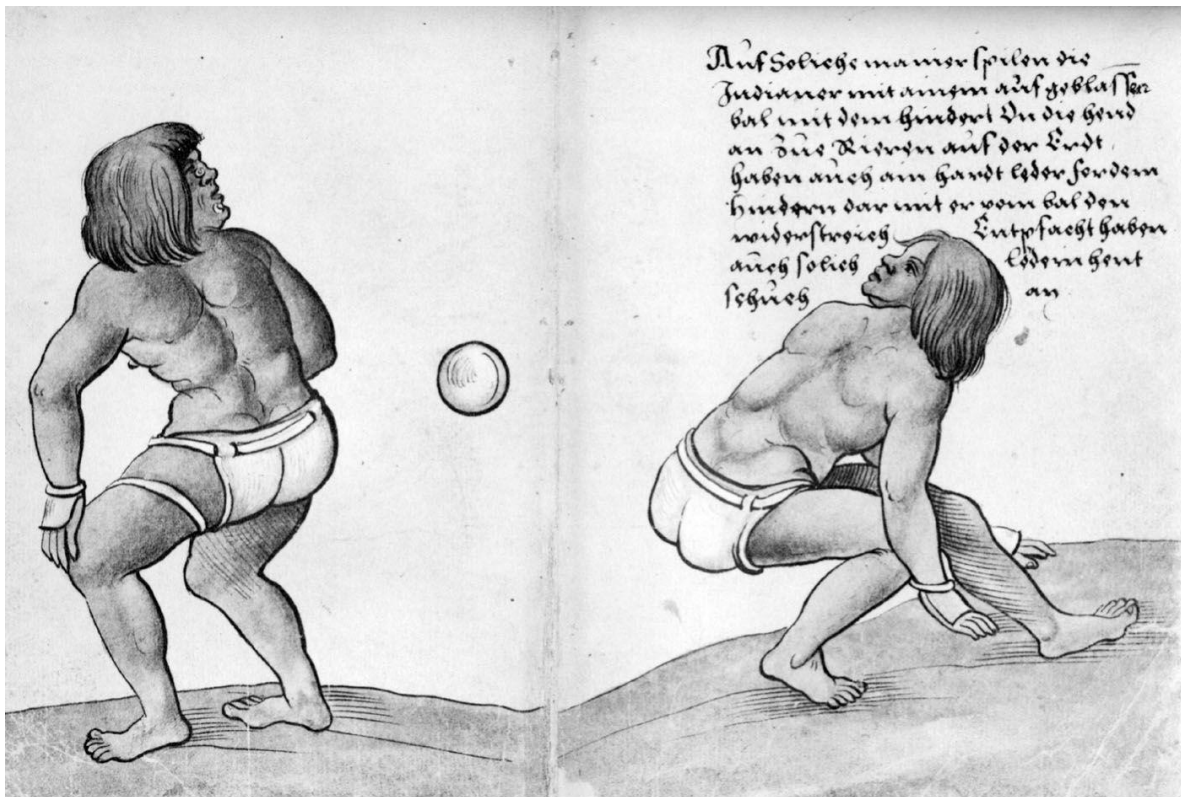 Auf Soliche manier spilen die
Indianer mit ainem auf geblassen
bal mit dem hindert On die hend
an Zue Rieren auf der Erdt
haben auch ain hardt leder for dem
hindern dar mit er vom bal den
widerstreich Entpfacht haben
auch solich ledern hent
schuch an